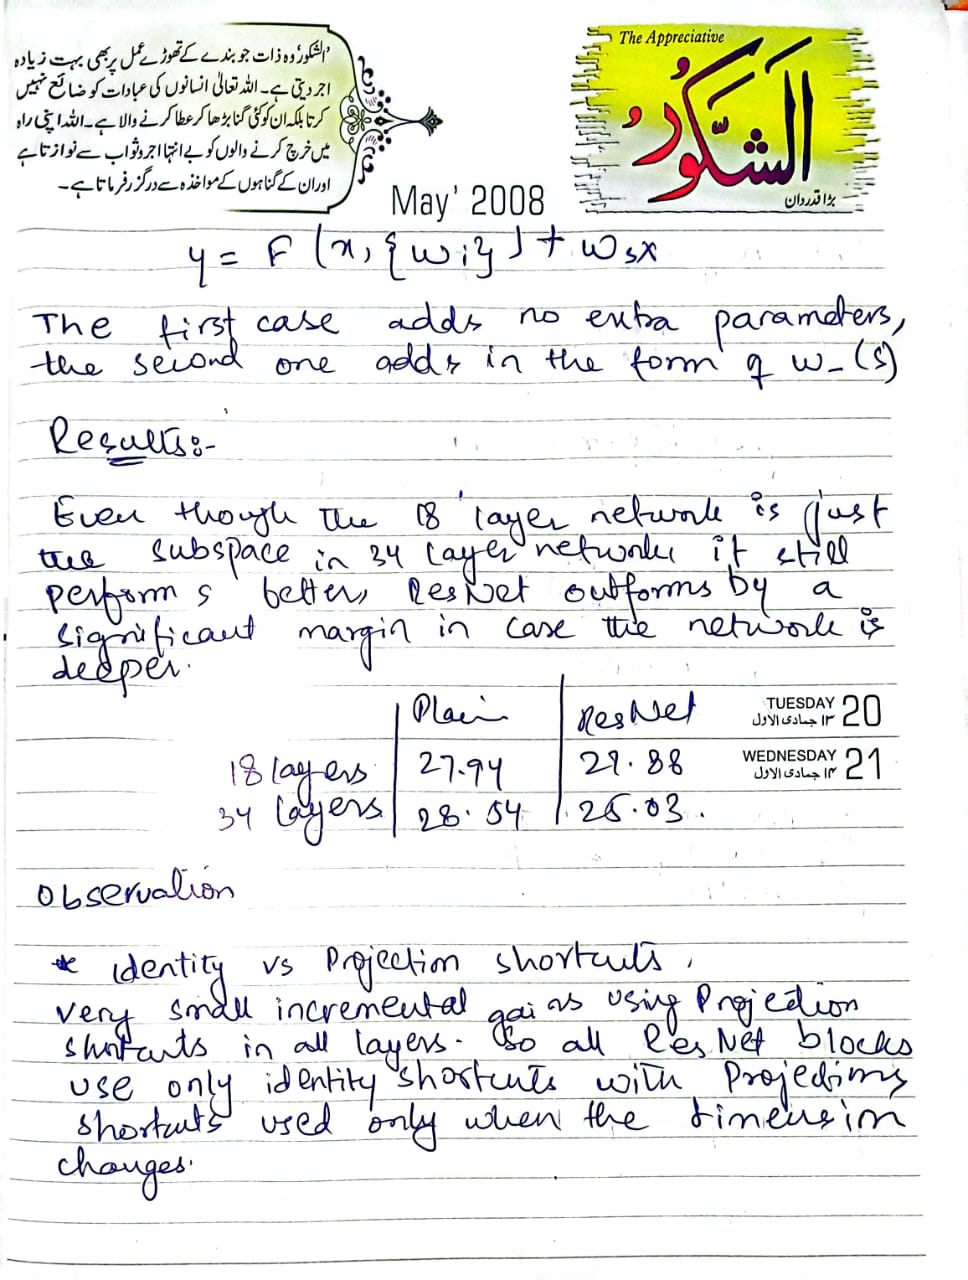 الشکور وہ ذات جو بندے کے تھوڑے عمل پر بھی بہت زیادہ
اجر دیتی ہے۔ اللہ تعالیٰ انسانوں کی عبادات کو ضائع نہیں
کرتا بلکہ ان کو کئی گنا بڑھا کر عطا کرنے والا ہے۔ اللہ اپنی راہ
میں خرچ کرنے والوں کو بے انتہا اجر و ثواب سے نوازتا ہے
اور ان کے گناہوں کے مواخذہ سے درگزر فرماتا ہے۔
The Appreciative
الشَّكُورُ
بڑا قدردان
May' 2008
y = F (x, {wi}) + wsx
The first case adds no extra parameters,
the second one adds in the form of w_(s)
Results:-
Even though the 18 layer network is just
the subspace in 34 layer network it still
performs better, ResNet outforms by a
significant margin in case the network is
deeper.
Plain ResNet
TUESDAY 20
۱۳ جمادی الاول
18 layers 27.94 27.88
WEDNESDAY 21
۱۴ جمادی الاول
34 layers 28.54 25.03.
Observation
* identity vs Projection shortcuts.
very small incremental gains using Projection
shortcuts in all layers. So all ResNet blocks
use only identity shortcuts with Projections
shortcuts used only when the dimension
changes.